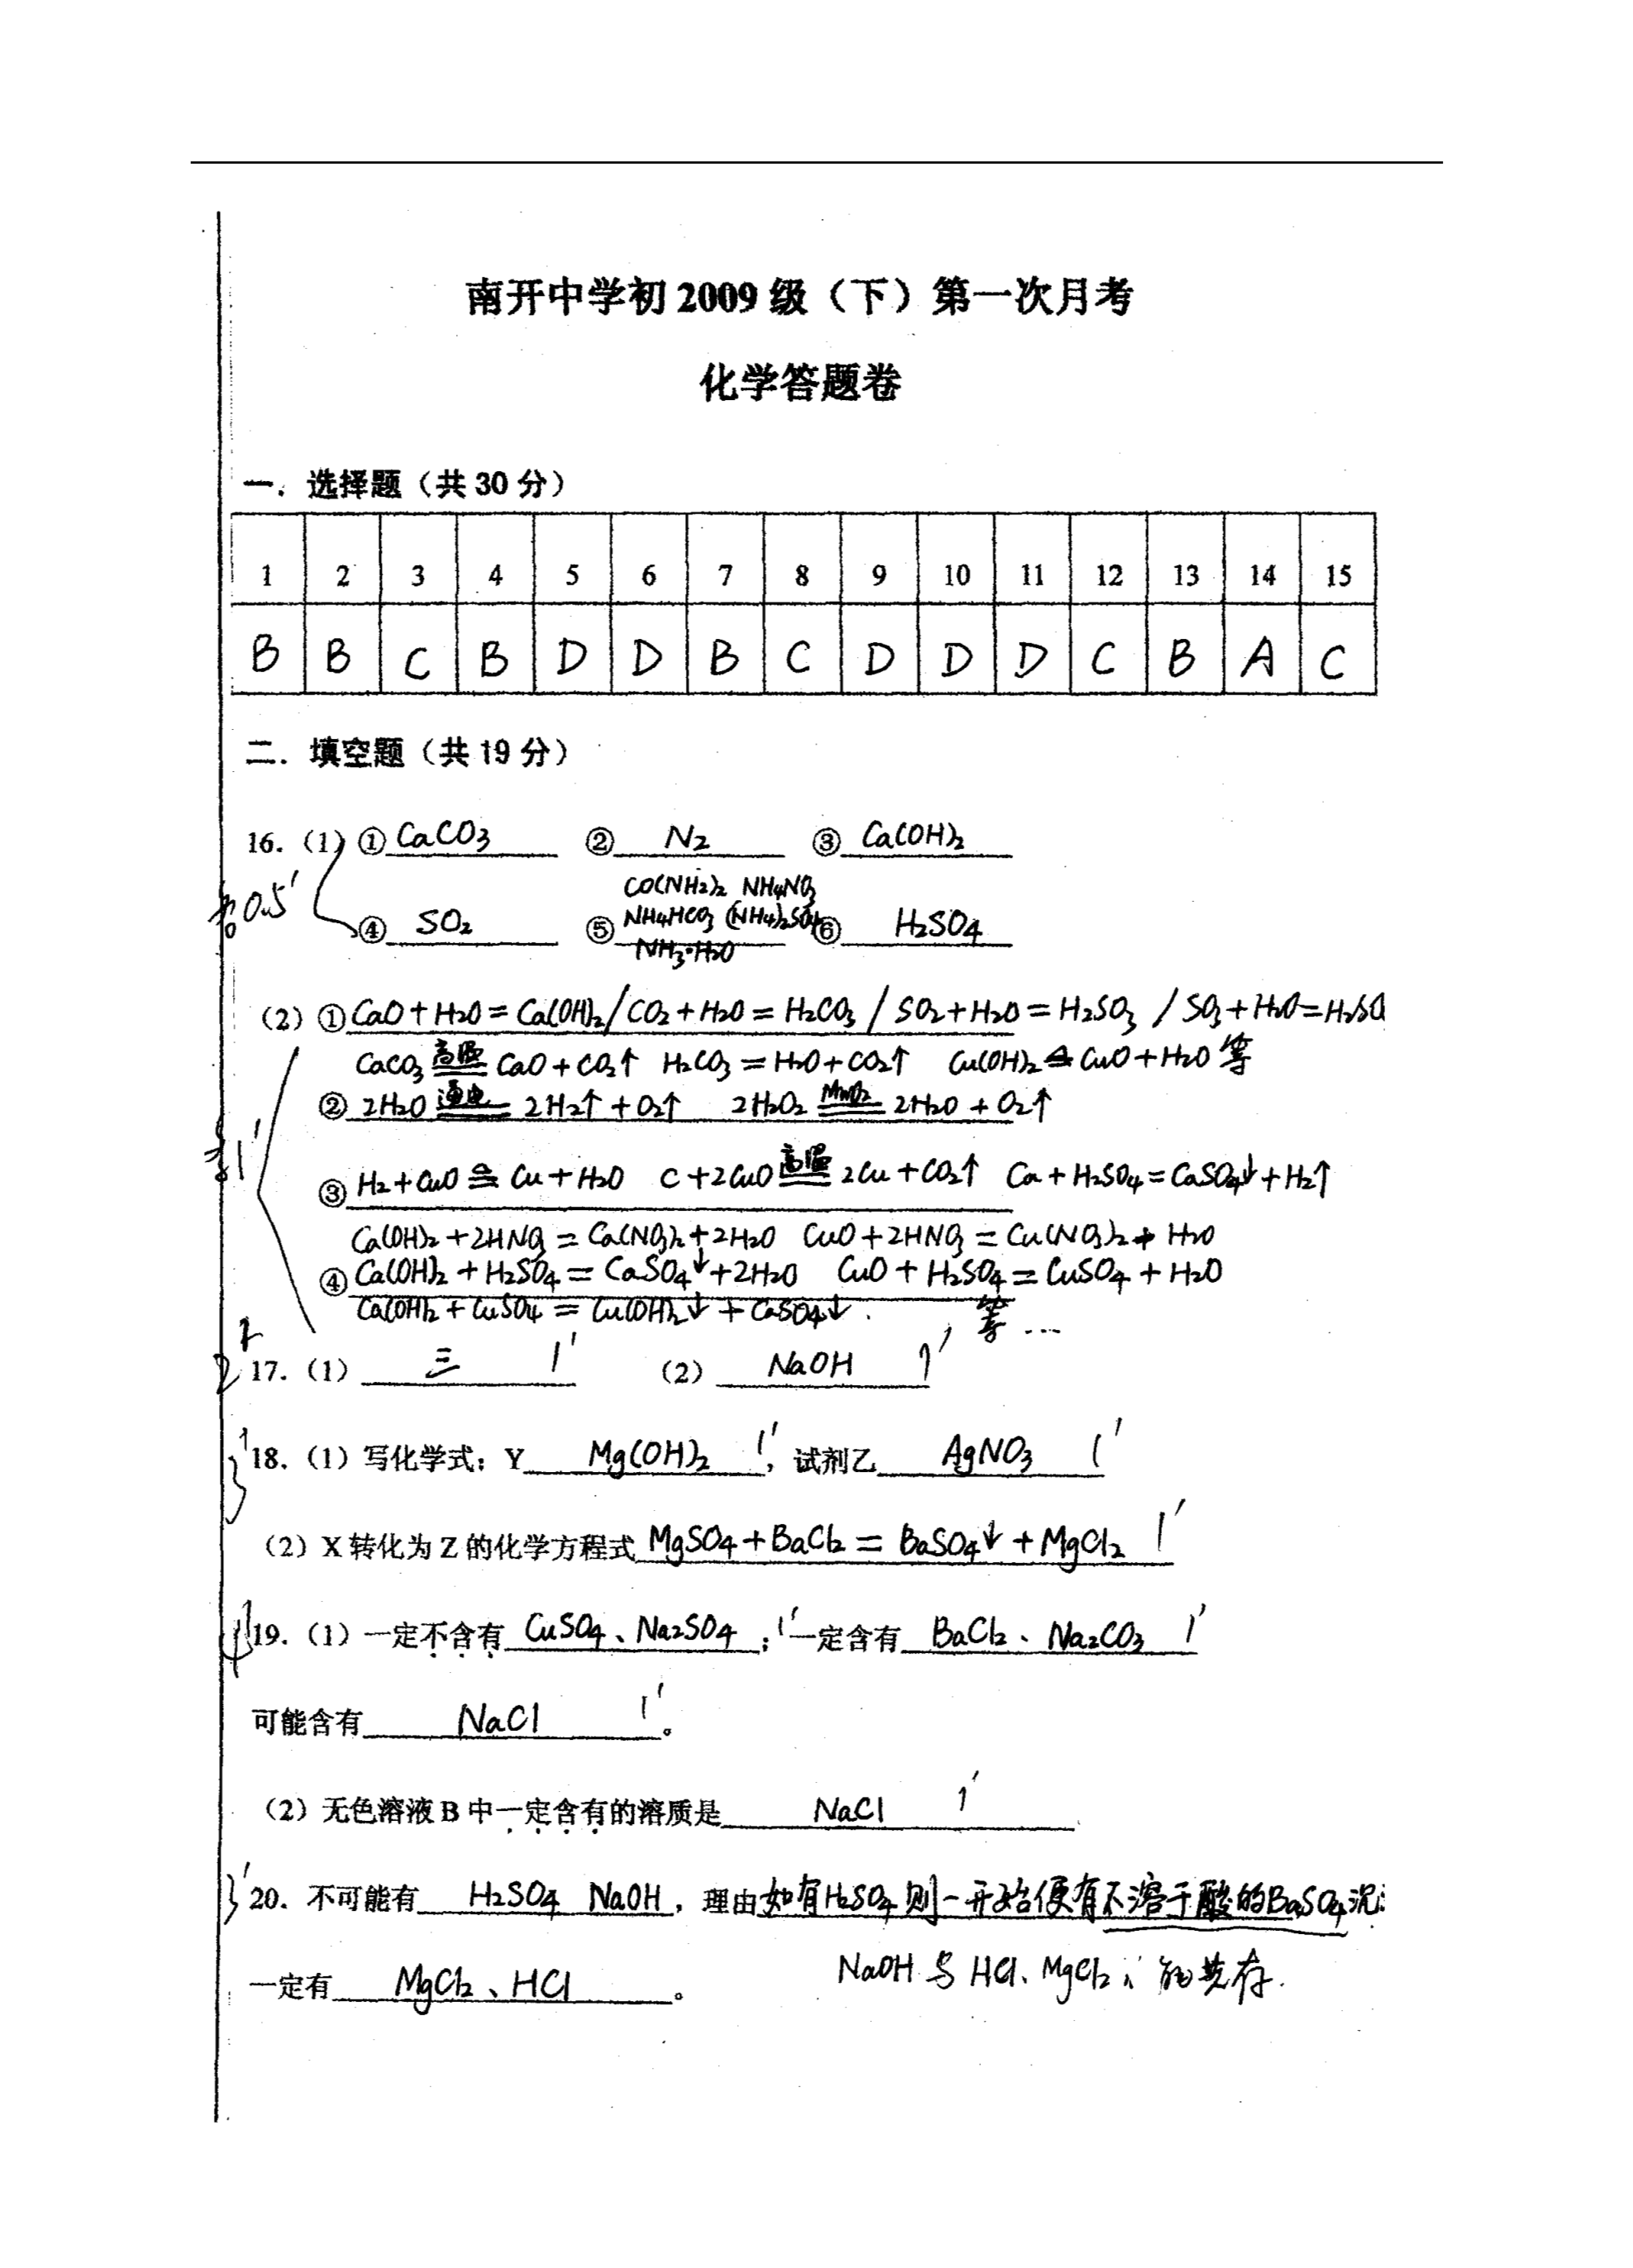 南开中学初 2009 级（下）第一次月考
化学答题卷
一．选择题（共 30 分）
1 2 3 4 5 6 7 8 9 10 11 12 13 14 15
B B C B D D B C D D D C B A C
二．填空题（共 19 分）
16.（1）① CaCO₃ ② N₂ ③ Ca(OH)₂
0.5′
CO(NH₂)₂ NH₄NO₃
④ SO₂ ⑤ NH₄HCO₃ (NH₄)₂SO₄ ⑥ H₂SO₄
NH₃·H₂O
（2）① CaO+H₂O=Ca(OH)₂/CO₂+H₂O=H₂CO₃/SO₂+H₂O=H₂SO₃/SO₃+H₂O=H₂SO
CaCO₃ 高温 CaO+CO₂↑ H₂CO₃=H₂O+CO₂↑ Cu(OH)₂ △ CuO+H₂O 等
② 2H₂O 通电 2H₂↑+O₂↑ 2H₂O₂ MnO₂ 2H₂O+O₂↑
1′
③ H₂+CuO △ Cu+H₂O C+2CuO 高温 2Cu+CO₂↑ Ca+H₂SO₄=CaSO₄↓+H₂↑
Ca(OH)₂+2HNO₃=Ca(NO₃)₂+2H₂O CuO+2HNO₃=Cu(NO₃)₂+H₂O
④ Ca(OH)₂+H₂SO₄=CaSO₄↓+2H₂O CuO+H₂SO₄=CuSO₄+H₂O
Ca(OH)₂+CuSO₄=Cu(OH)₂↓+CaSO₄↓. 等…
2′ 17.（1） 三 1′ （2） NaOH 1′
3′ 18.（1）写化学式：Y Mg(OH)₂ 1′，试剂乙 AgNO₃ 1′
（2）X 转化为 Z 的化学方程式 MgSO₄+BaCl₂=BaSO₄↓+MgCl₂ 1′
4′ 19.（1）一定不含有 CuSO₄、Na₂SO₄；1′一定含有 BaCl₂、Na₂CO₃ 1′
可能含有 NaCl 1′。
（2）无色溶液 B 中一定含有的溶质是 NaCl 1′
3′ 20. 不可能有 H₂SO₄ NaOH，理由如有H₂SO₄则一开始便有不溶于酸的BaSO₄沉
一定有 MgCl₂、HCl。 NaOH 与 HCl、MgCl₂ 能共存.